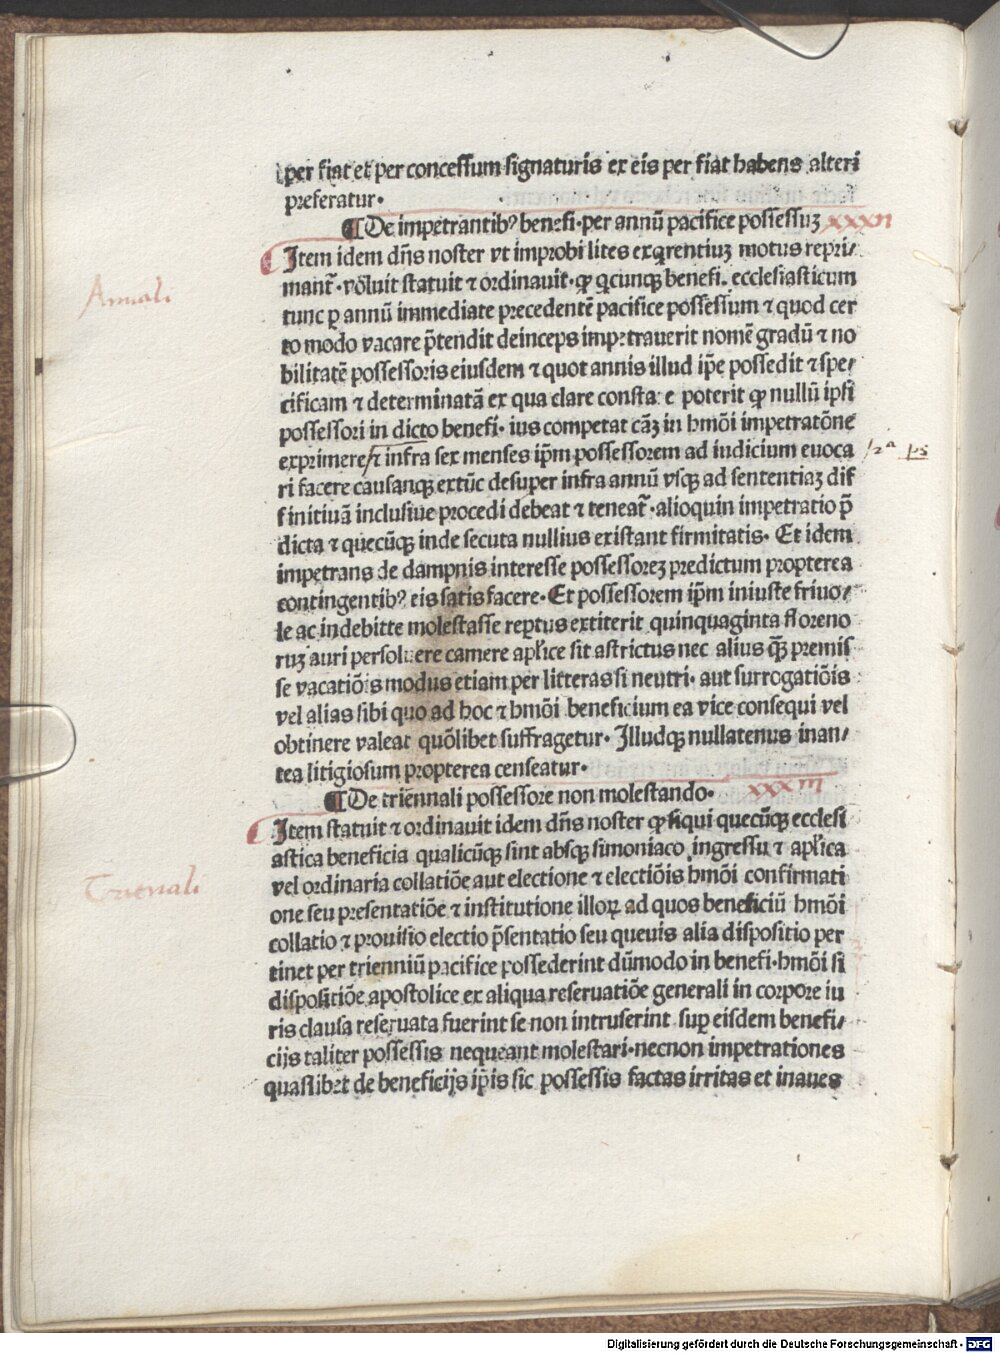 per fiat et per concessum signaturis ex eis per fiat habens alteri
preferatur·
¶ De impetrantibꝰ benefi·per annū pacifice possessuꝫ xxxii
Item idem dn̄s noster vt improbi lites exqrentiuꝫ motus repri/
mant̄·voluit statuit ⁊ ordinauit·ꝙ qcunqꝫ benefi. ecclesiasticum
tunc ꝑ annū immediate precedentē pacifice possessum ⁊ quod cer
to modo vacare p̄tendit deinceps impetrauerit nomē gradū ⁊ no
bilitatē possessoris eiusdem ⁊ quot annis illud ip̄e possedit ⁊ spe/
cificam ⁊ determinatā ex qua clare consta e poterit ꝙ nullū ipsi
possessori in dicto benefi· ius competat cāꝫ in hmōi impetratōne
exprimere ⁊ infra sex menses ip̄m possessorem ad iudicium euoca
ri facere causanqꝫ extūc desuper infra annū vsqꝫ ad sententiaꝫ dif
finitiuā inclusiue procedi debeat ⁊ teneat̄·alioquin impetratio p̄
dicta ⁊ quecūqꝫ inde secuta nullius existant firmitatis· Et idem
impetrans de dampnis interesse possessoreꝫ predictum propterea
contingentibꝰ eis satis facere· Et possessorem ip̄m iniuste friuo/
le ac indebitte molestasse reptus extiterit quinquaginta floreno
ruꝫ auri persoluere camere apl̄ice sit astrictus nec alius qꝫ premis
se vacatiōis modus etiam per litteras si neutri· aut surrogatiōis
vel alias sibi quo ad hoc ⁊ hmōi beneficium ea vice consequi vel
obtinere valeat quōlibet suffragetur· Illudqꝫ nullatenus inan/
tea litigiosum propterea censeatur·
¶ De triennali possessore non molestando· xxxiii
Item statuit ⁊ ordinauit idem dn̄s noster ꝙ siqui quecūqꝫ ecclesi
astica beneficia qualicūqꝫ sint absqꝫ simoniaco ingressu ⁊ apl̄ica
vel ordinaria collatiōe aut electione ⁊ electiōis hmōi confirmati
one seu presentatiōe ⁊ institutione illoꝝ ad quos beneficiū hmōi
collatio ⁊ prouisio electio p̄sentatio seu queuis alia dispositio per
tinet per trienniū pacifice possederint dūmodo in benefi·hmōi si
dispositiōe apostolice ex aliqua reseruatiōe generali in corpore iu
ris clausa reseruata fuerint se non intruserint suꝑ eisdem benefi/
cijs taliter possessis nequeant molestari·necnon impetrationes
quaslibet de beneficijs ip̄is sic possessis factas irritas et inanes
Annali
Trienali
Digitalisierung gefördert durch die Deutsche Forschungsgemeinschaft · DFG